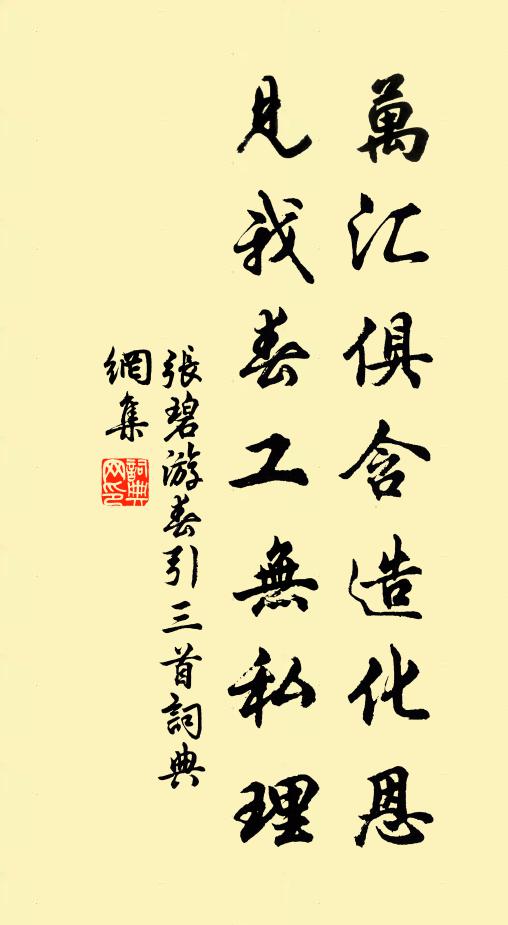 萬汇俱含造化恩
見我春工無私理
張碧游春引三首詞典
網集
詞典
网印